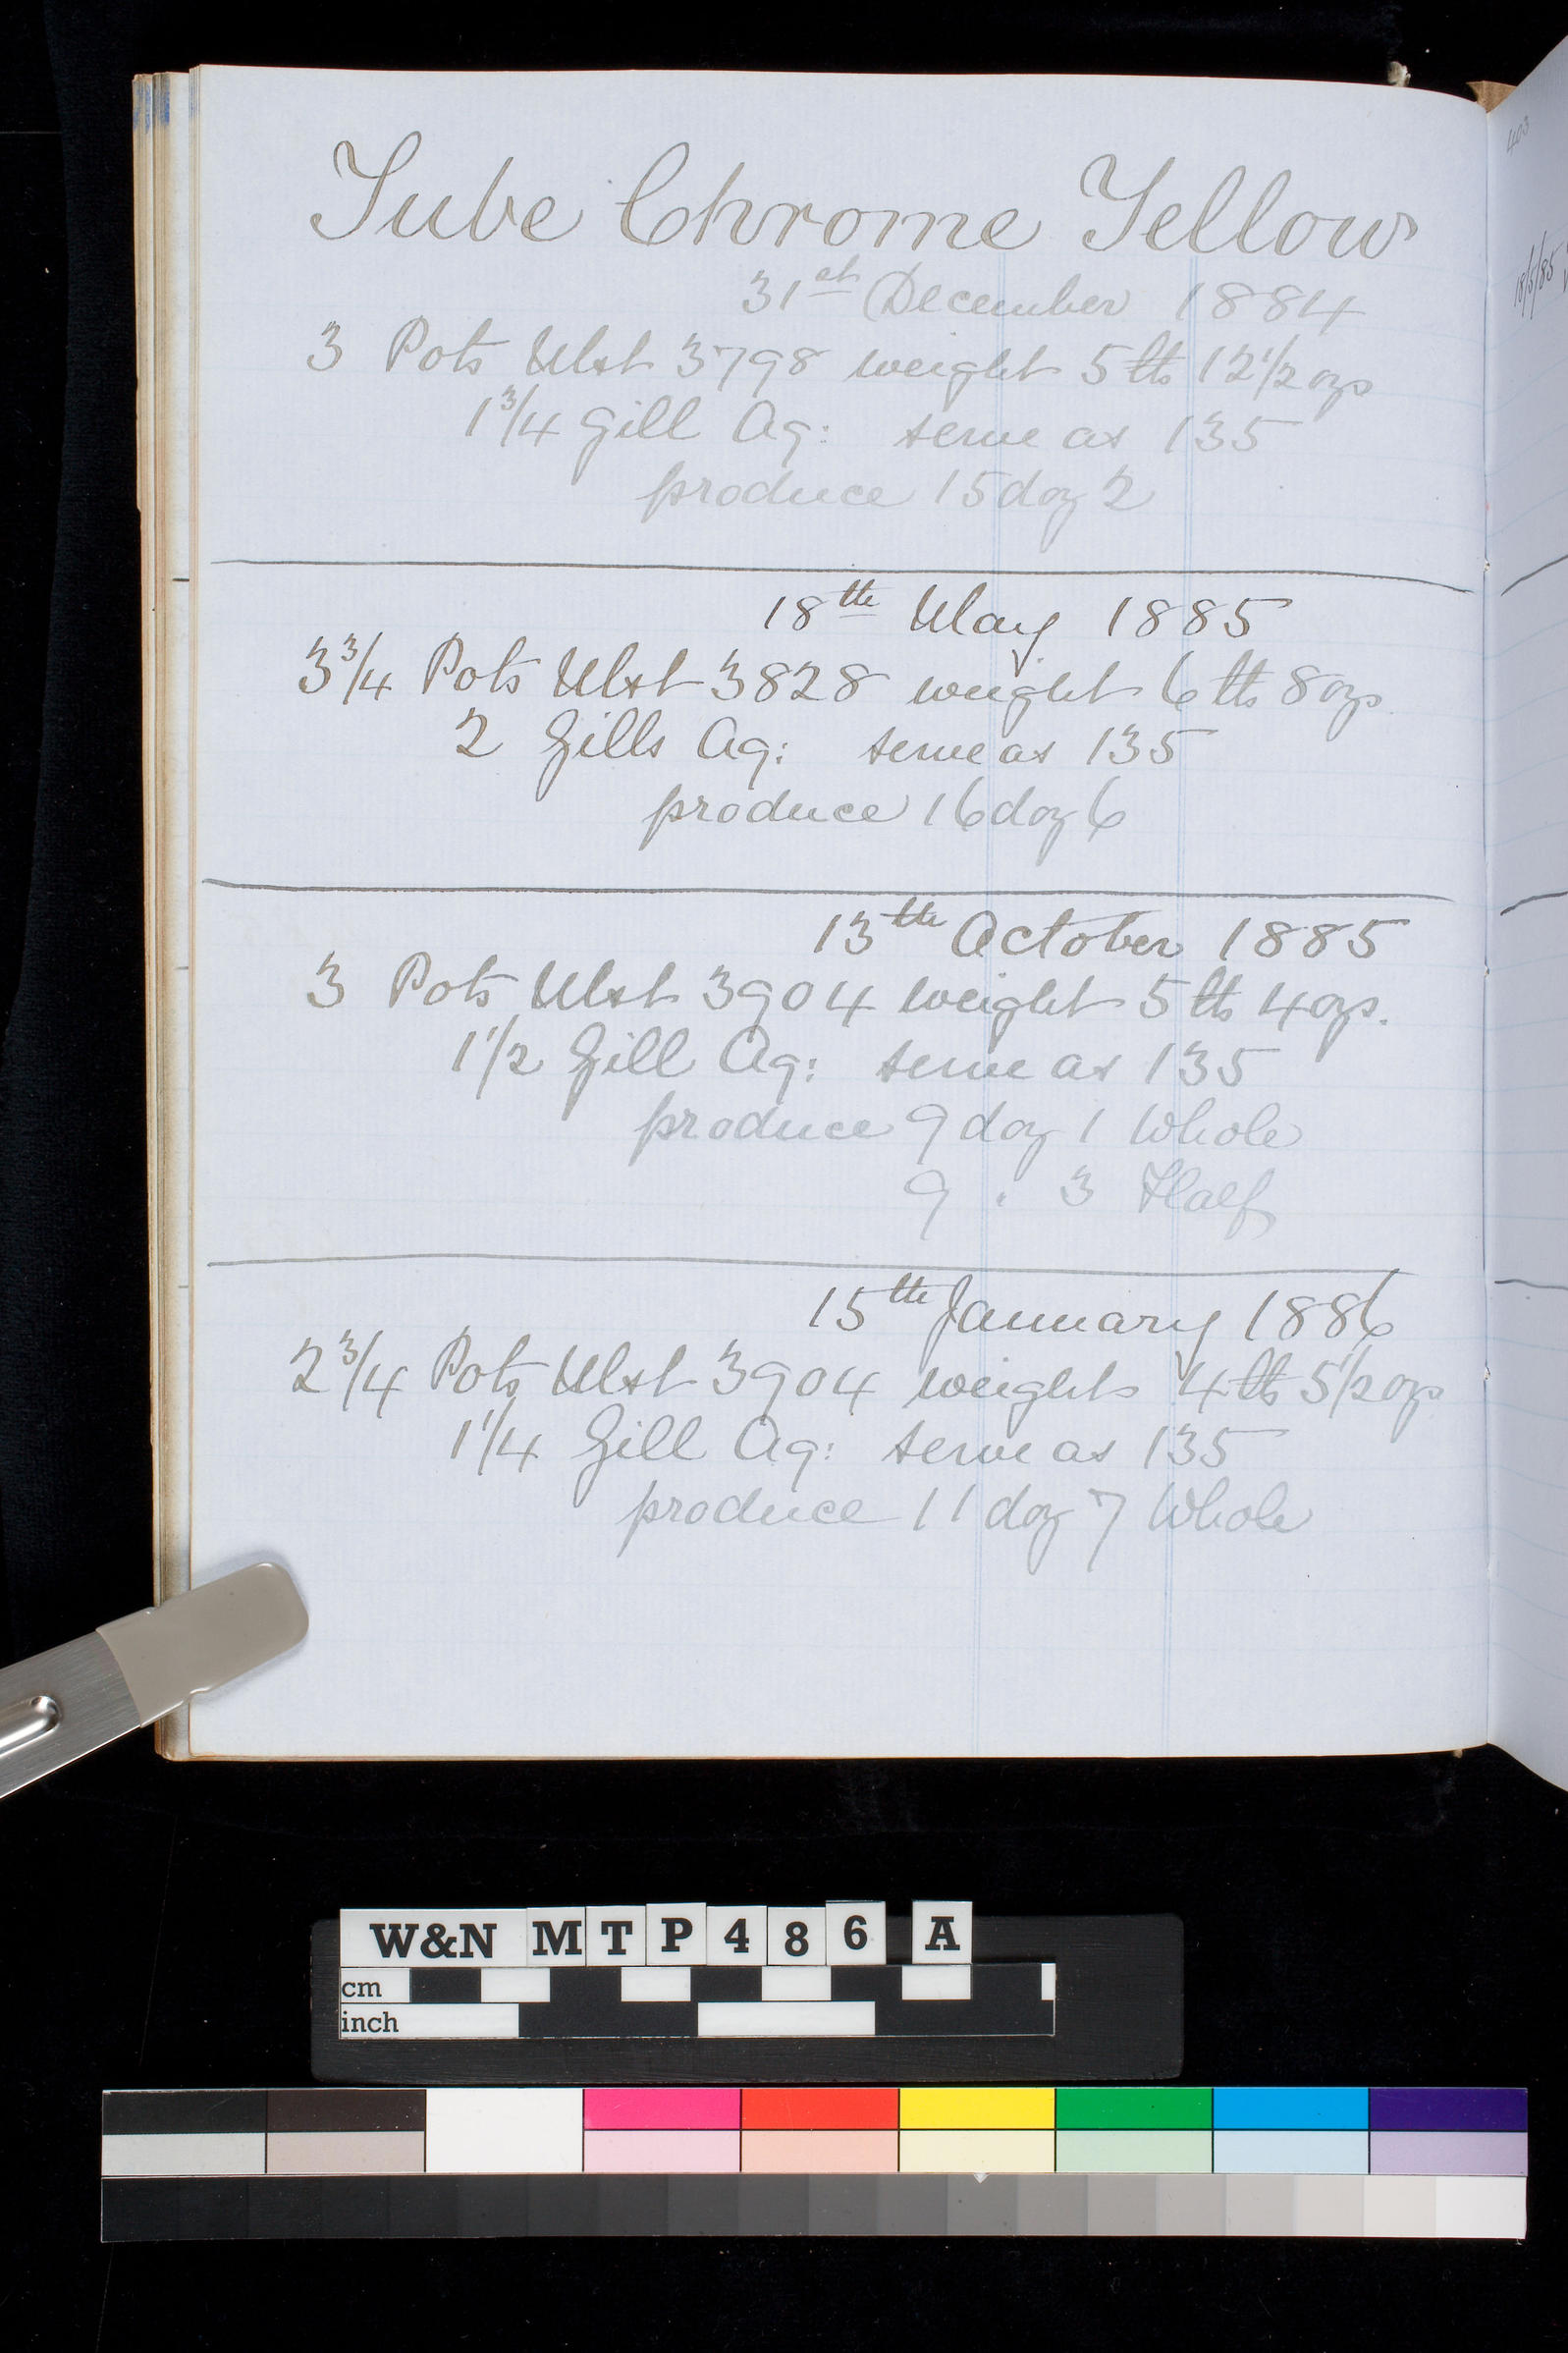 Tube Chrome Yellow
31st December 1884
3 Pots Mxt 3798 weight 5 lb 12 1/2 ozs
1 3/4 Gill Aq: serve as 135
produce 15 doz 2
18th May 1885
3 3/4 Pots Mxt 3828 weight 6 lb 8 ozs
2 Gills Aq: serve as 135
produce 16 doz 6
13th October 1885
3 Pots Mxt 3904 weight 5 lb 4 ozs.
1 1/2 Gill Aq: serve as 135
produce 9 doz 1 Whole
9 . 3 Half
15th January 1886
2 3/4 Pots Mxt 3904 weighs 4 lb 5 1/2 ozs
1 1/4 Gill Aq: serve as 135
produce 11 doz 7 Whole
403
18/5/85
W&N MTP486 A
cm
inch